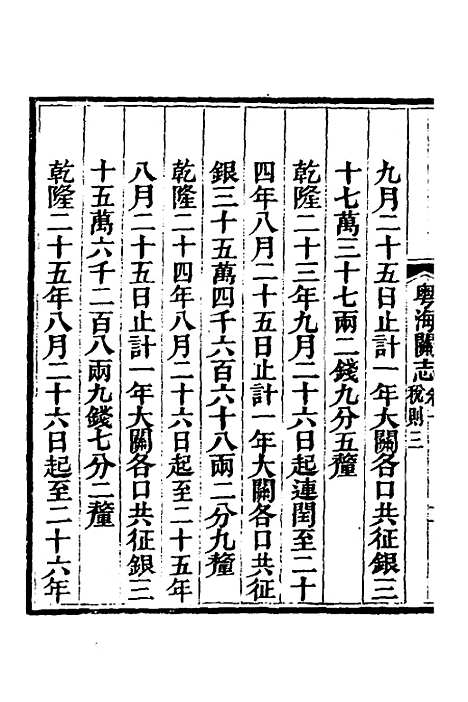 粵海關志
稅則三
九月二十五日止計一年大關各口共征銀三
十七萬三十七兩二錢九分五釐
乾隆二十三年九月二十六日起連閏至二十
四年八月二十五日止計一年大關各口共征
銀三十五萬四千六百六十八兩二分九釐
乾隆二十四年八月二十六日起至二十五年
八月二十五日止計一年大關各口共征銀三
十五萬六千二百八兩九錢七分二釐
乾隆二十五年八月二十六日起至二十六年